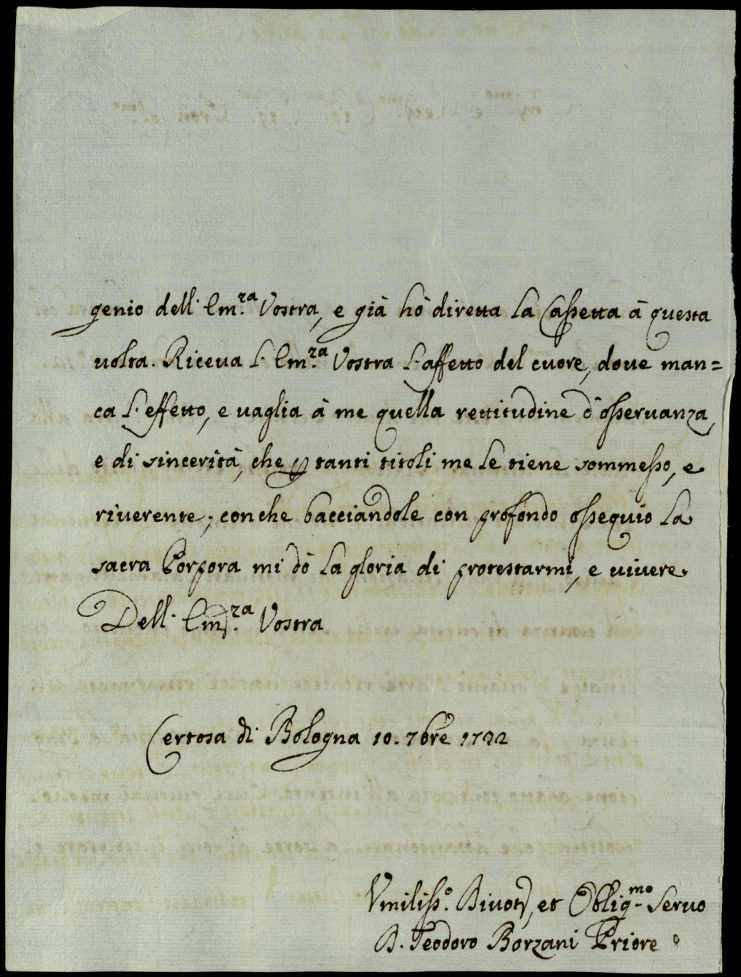 genio dell' Em.za Vostra, e già hò diretta la Cassetta à questa
volta. Riceva l'Em.za Vostra l'affetto del cuore, dove man=
ca l'effetto, e vaglia à me quella rettitudine d'osservanza,
e di sincerità, che p tanti titoli me le tiene sommesso, e
riverente; con che bacciandole con profondo ossequio la
sacra Porpora mi dò la gloria di protestarmi, e vivere
Dell' Em.za Vostra
Certosa di Bologna 10. 7bre 1732
Umiliss.o Divot, et Oblig.mo Servo
D. Teodoro Borzani Priore